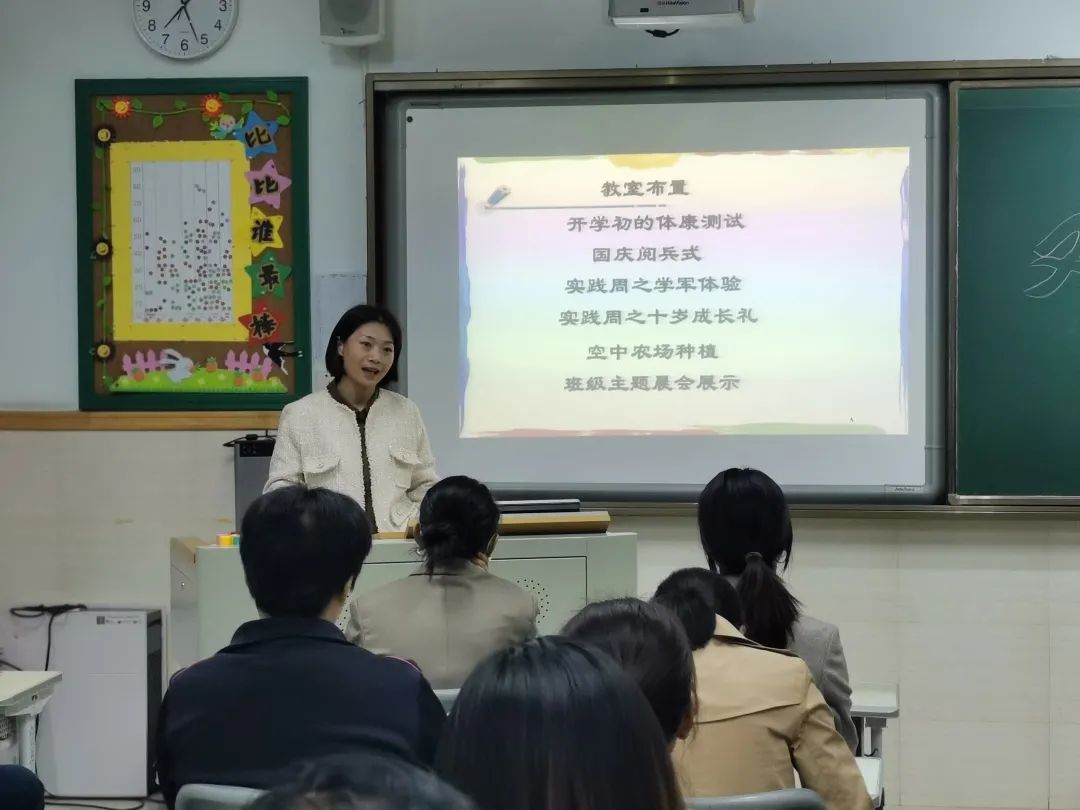 9
8
7
6
5
4
3
比
比
谁
最
棒
教室布置
开学初的体康测试
国庆阅兵式
实践周之学军体验
实践周之十岁成长礼
空中农场种植
班级主题展会展示